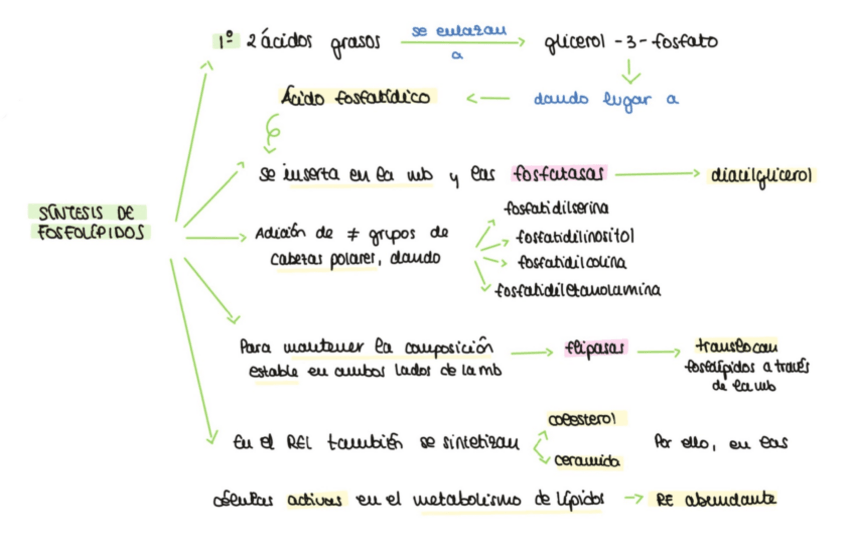 1º 2 ácidos grasos se enlazan a glicerol-3-fosfato
Ácido fosfatídico dando lugar a
se inserta en la mb y las fosfatasas diacilglicerol
SÍNTESIS DE
FOSFOLÍPIDOS
Adición de ≠ grupos de
cabezas polares, dando
fosfatidilserina
fosfatidilinositol
fosfatidilcolina
fosfatidiletanolamina
Para mantener la composición
estable en ambos lados de la mb
flipasas
translocan
fosfolípidos a través
de la mb
En el REL también se sintetizan
colesterol
ceramida
Por ello, en las
células activas en el metabolismo de lípidos → RE abundante